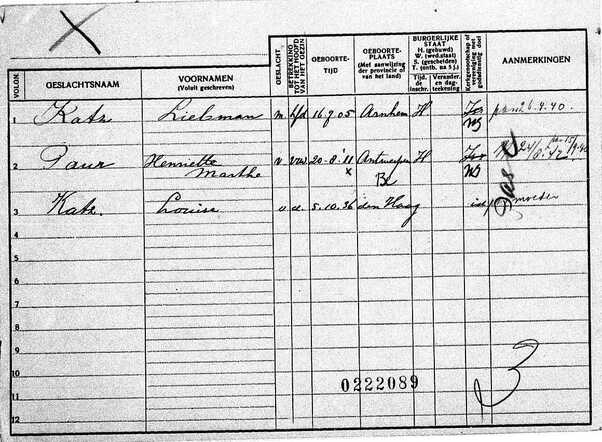 X
VOLGN.
GESLACHTSNAAM
VOORNAMEN
(Voluit geschreven)
GESLACHT
BETREKKING TOT HET HOOFD VAN HET GEZIN
GEBOORTE-
TIJD
GEBOORTE-
PLAATS
(Met aanwijzing
der provincie of
van het land)
BURGERLIJKE
STAAT
H (gehuwd)
W. (wed.staat)
S. (gescheiden)
T. (ontb. na s.j.)
Tijd. de inschr.
Verander. en dag-teekening
Kerkgenootschap of vereeniging met godsdienstig doel
AANMERKINGEN
1 Katz Lielsman m hfd 16.7.05 Arnhem H NG 26.4.40.
2 Henriette Marthe v vrw 20-8-'11 Antwerpen H NG
x B.
3 Katz. Louise v d. 5.10.36 den Haag id moeder
4
5
6
7
8
9
10
11 0222089
12
3